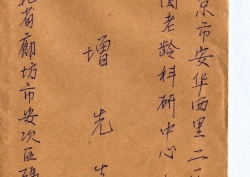 京市安华西里二
老龄科研中心
增先生
省廊坊市安次区